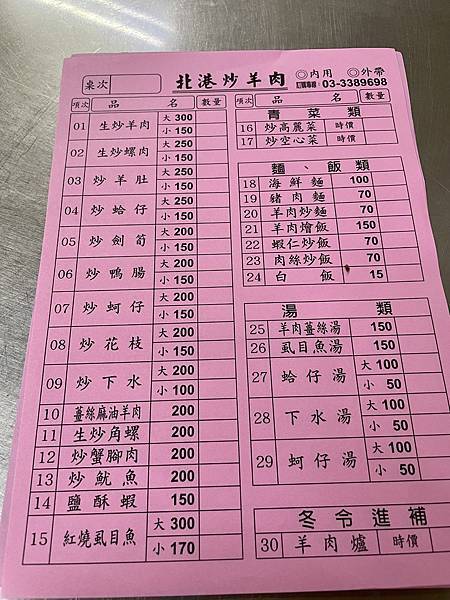 桌次
北港炒羊肉 ◎內用 ◎外帶
訂購專線:03-3389698
項次 品名 數量
01 生炒羊肉 大 300
小 150
02 生炒螺肉 大 250
小 150
03 炒羊肚 大 250
小 150
04 炒蛤仔 大 250
小 150
05 炒劍筍 大 200
小 150
06 炒鴨腸 大 200
小 150
07 炒蚵仔 大 200
小 150
08 炒花枝 大 200
小 150
09 炒下水 大 200
小 100
10 薑絲麻油羊肉 200
11 生炒角螺 200
12 炒蟹腳肉 200
13 炒魷魚 200
14 鹽酥蝦 150
15 紅燒虱目魚 大 300
小 170
項次 品名 數量
青菜類
16 炒高麗菜 時價
17 炒空心菜 時價
麵、飯類
18 海鮮麵 100
19 豬肉麵 70
20 羊肉炒麵 70
21 羊肉燴飯 150
22 蝦仁炒飯 70
23 肉絲炒飯 70
24 白飯 15
湯類
25 羊肉薑絲湯 150
26 虱目魚湯 150
27 蛤仔湯 大 100
小 50
28 下水湯 大 100
小 50
29 蚵仔湯 大 100
小 50
冬令進補
30 羊肉爐 時價